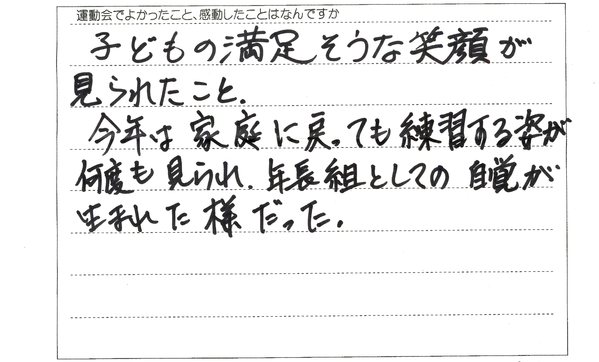 運動会でよかったこと、感動したことはなんですか
子どもの満足そうな笑顔が
見られたこと.
今年は家庭に戻っても練習する姿が
何度も見られ.年長組としての自覚が
生まれた様だった.